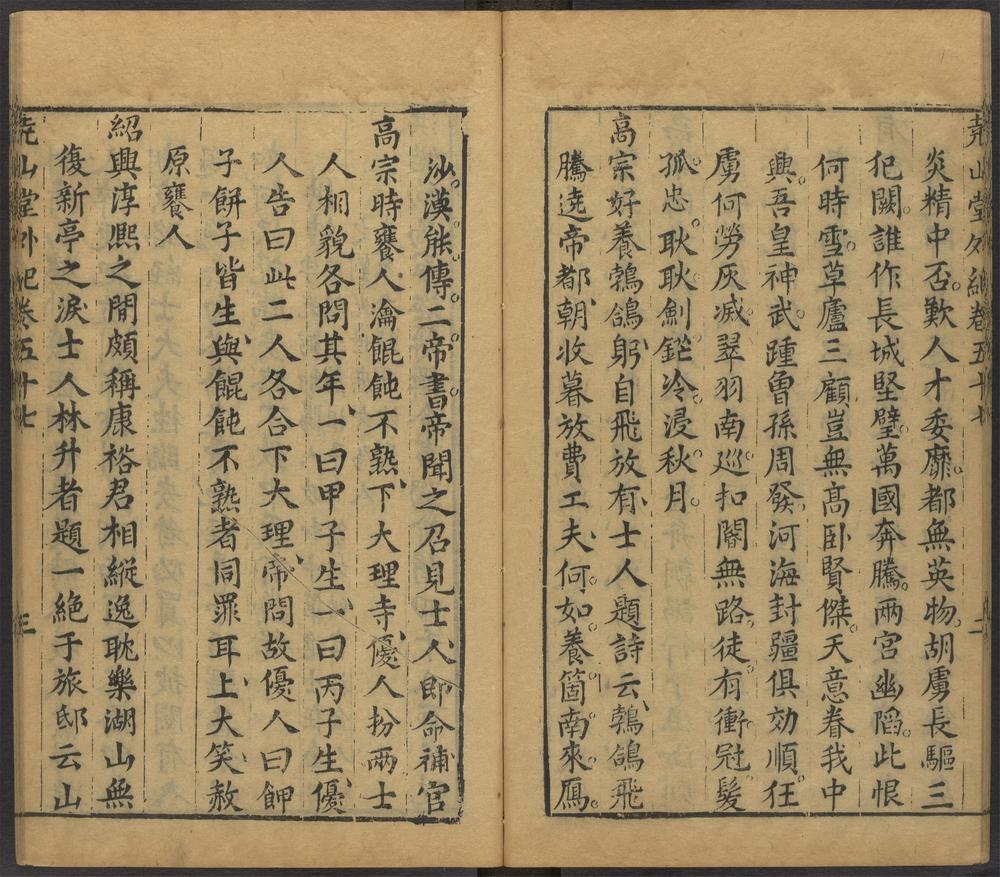 堯山堂外紀卷五十七 二
炎精中否歎人才委靡都無英物胡虜長驅三
犯闕誰作長城堅壁萬國奔騰兩宮幽陷此恨
何時雪草廬三顧豈無高卧賢傑天意眷我中
興吾皇神武踵曾孫周發河海封疆俱効順狂
虜何勞灰滅翠羽南巡扣閽無路徒有衝冠髮
孤忠耿耿劍鋩冷浸秋月
高宗好養鵓鴿躬自飛放有士人題詩云鵓鴿飛
騰遶帝都朝收暮放費工夫何如養箇南來鴈
沙漠能傳二帝書帝聞之召見士人即命補官
高宗時饔人瀹餛飩不熟下大理寺優人扮兩士
人相貌各問其年一曰甲子生一曰丙子生優
人告曰此二人各合下大理帝問故優人曰餄
子餅子皆生與餛飩不熟者同罪耳上大笑赦
原饔人
紹興淳熙之間頗稱康裕君相縱逸耽樂湖山無
復新亭之淚士人林升者題一絕于旅邸云山
堯山堂外紀卷五十七 三